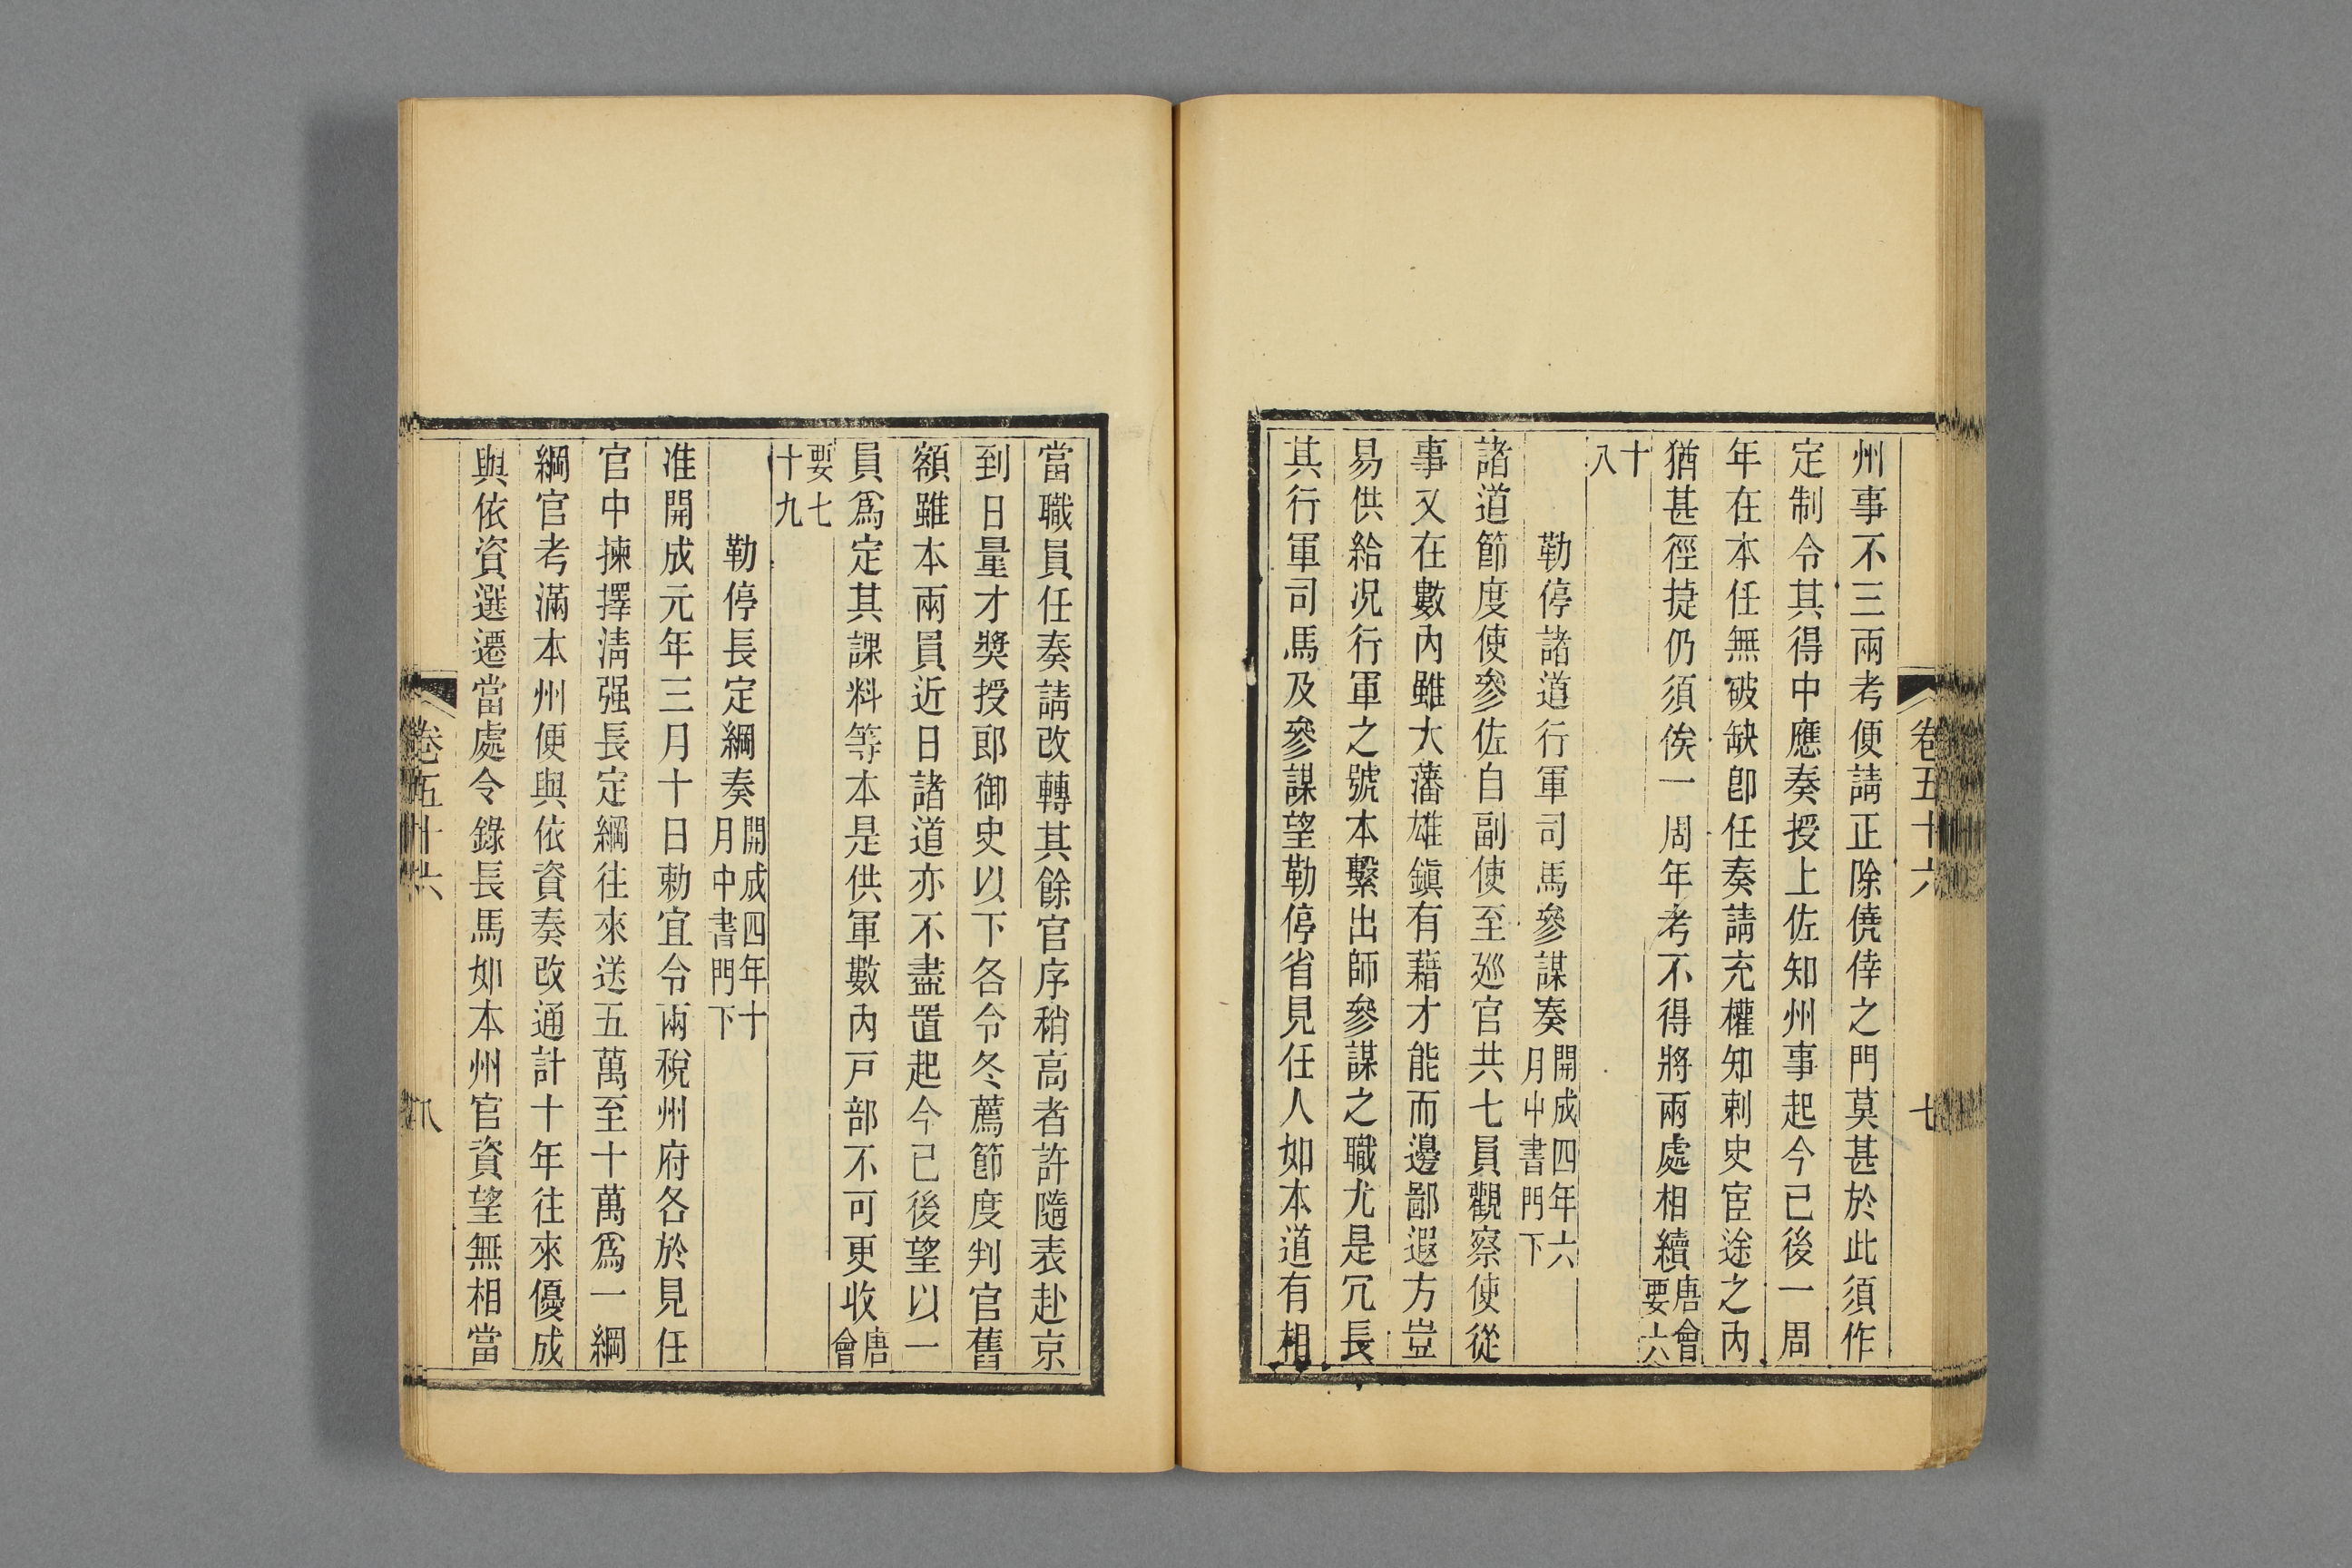 卷五十六
七
州事不三兩考便請正除僥倖之門莫甚於此須作
定制令其得中應奏授上佐知州事起今已後一周
年在本任無破缺卽任奏請充權知刺史宦途之內
猶甚徑捷仍須俟一周年考不得將兩處相續唐會要六
十八
勒停諸道行軍司馬參謀奏開成四年六月中書門下
諸道節度使參佐自副使至廵官共七員觀察使從
事又在數內雖大藩雄鎭有藉才能而邊鄙遐方豈
易供給况行軍之號本繫出師參謀之職尤是冗長
其行軍司馬及參謀望勒停省見任人如本道有相
當職員任奏請改轉其餘官序稍高者許隨表赴京
到日量才獎授郎御史以下各令冬薦節度判官舊
額雖本兩員近日諸道亦不盡置起今已後望以一
員爲定其課料等本是供軍數內戸部不可更收唐會
要七十九
勒停長定綱奏開成四年十月中書門下
准開成元年三月十日勅宜令兩稅州府各於見任
官中揀擇淸强長定綱往來送五萬至十萬爲一綱
綱官考滿本州便與依資奏改通計十年往來優成
與依資選遷當處令錄長馬如本州官資望無相當
卷五十六
八